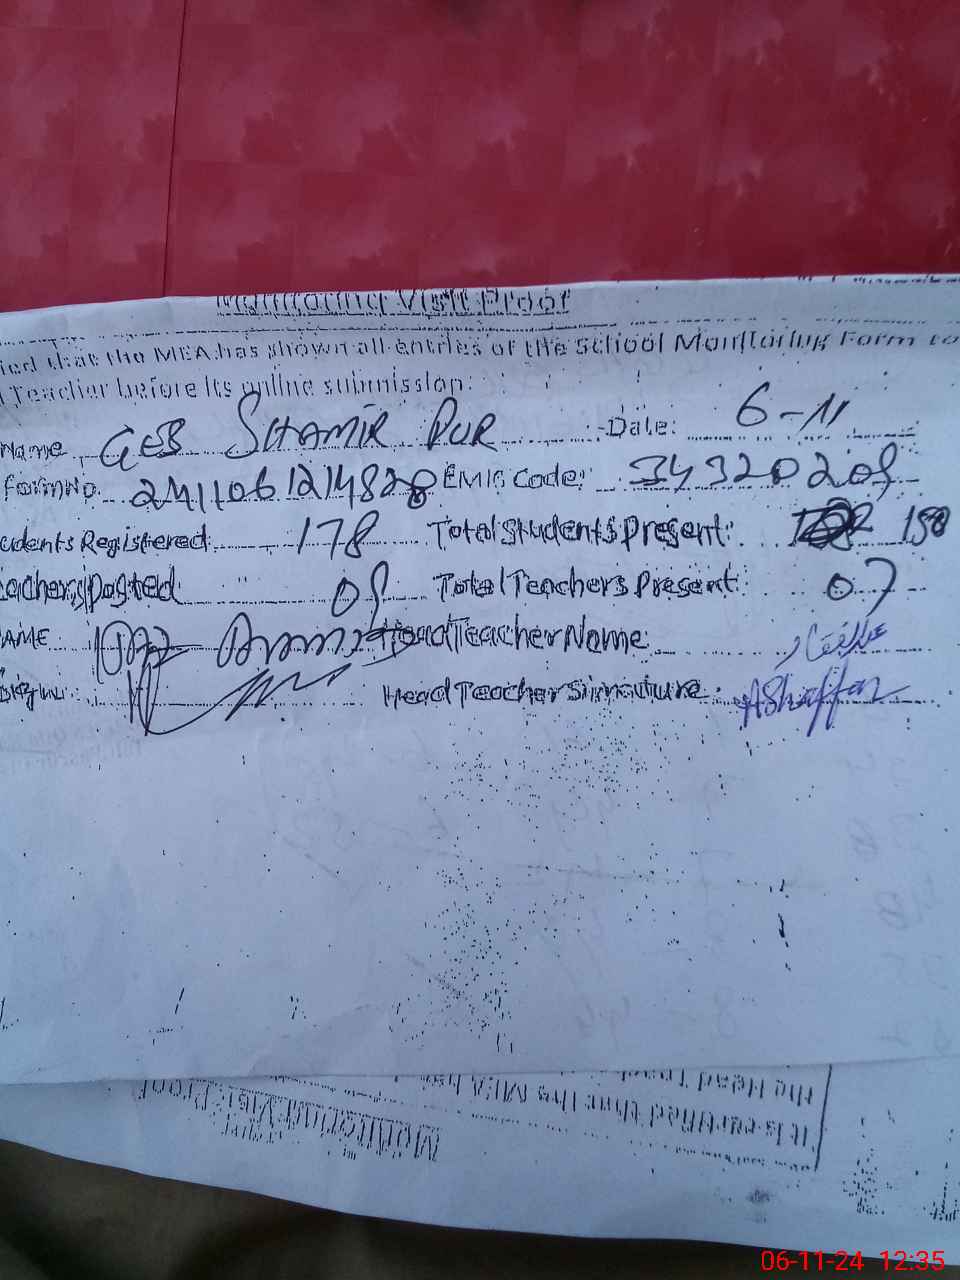 Monitoring Visit Proof
ied that the MEA has shown all entries of the School Monitoring Form to
Teacher before its online submission.
Name GES SHAMIR PUR Date: 6-11
Form No. 241106121482 EMIS Code: 34320208
udents Registered 178 Total Students Present: 150
eachers posted 08 Total Teachers Present: 07
AME Head Teacher Name:
Head Teacher Signature: AShaffar
the Head Teach
It is certified that the MEA has
Monitoring Visit Proof
06-11-24 12:35